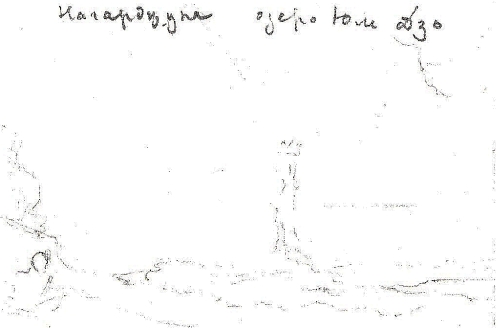 Нагарджуна озеро Юм Дзо